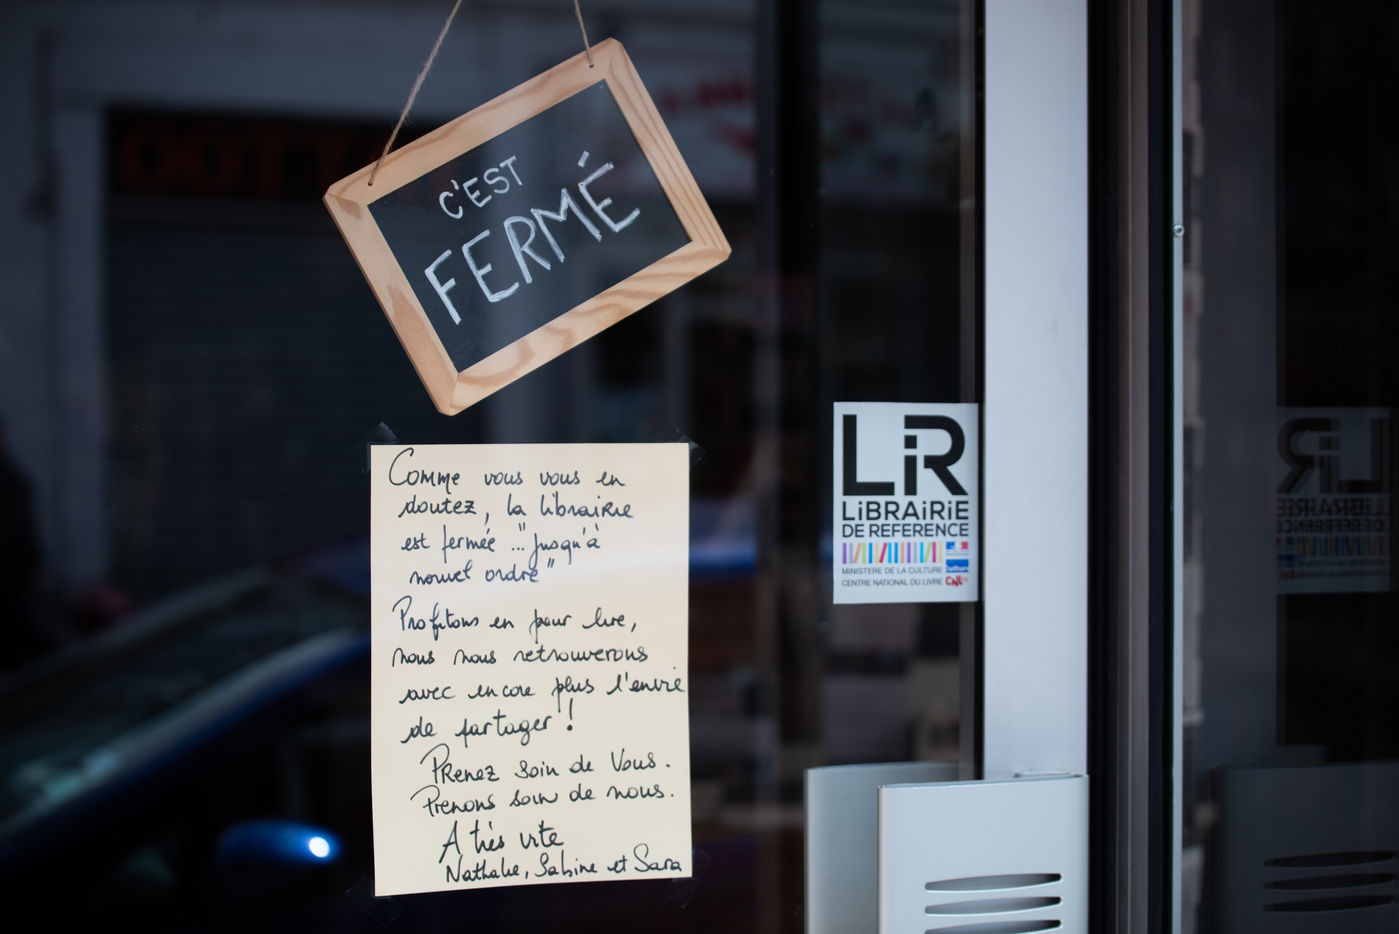 C'EST
FERMÉ
Comme vous vous en
doutez, la librairie
est fermée ... "jusqu'à
nouvel ordre"
Profitons en pour lire,
nous nous retrouverons
avec encore plus l'envie
de partager !
Prenez soin de Vous.
Prenons soin de nous.
A très vite
Nathalie, Sabine et Sara
LiR
LiBRAiRiE
DE REFERENCE
MINISTERE DE LA CULTURE
CENTRE NATIONAL DU LIVRE